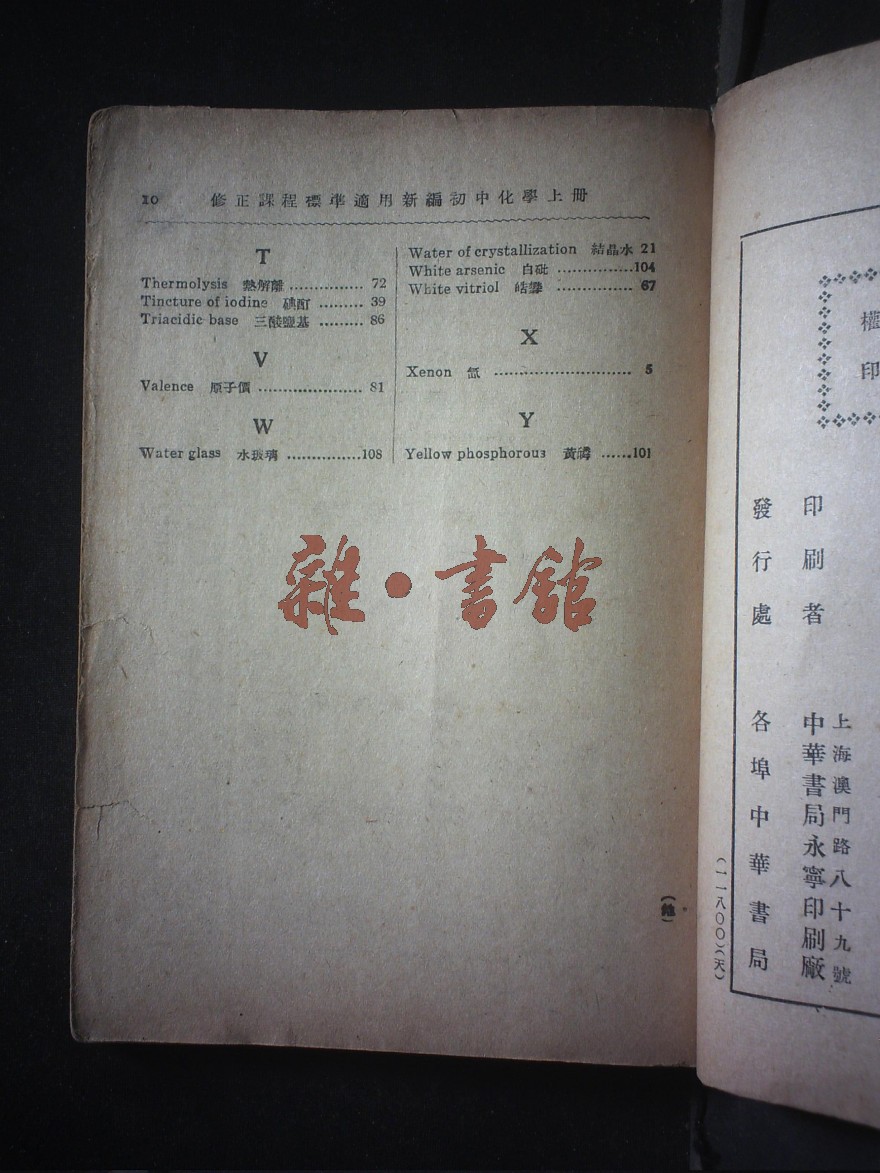 10 修正課程標準適用新編初中化學上冊
T
Thermolysis 熱解離 ............... 72
Tincture of iodine 碘酊 ......... 39
Triacidic base 三酸鹽基 ......... 86
V
Valence 原子價 ..................... 81
W
Water glass 水玻璃 ...............108
Water of crystallization 結晶水 21
White arsenic 白砒 ...............104
White vitriol 皓礬 ............... 67
X
Xenon 氙 ........................... 5
Y
Yellow phosphorous 黃燐 ......101
雜·書館
權
印
上海澳門路八十九號
印刷者 中華書局永寧印刷廠
發行處 各埠中華書局
(一一八〇〇)(天)